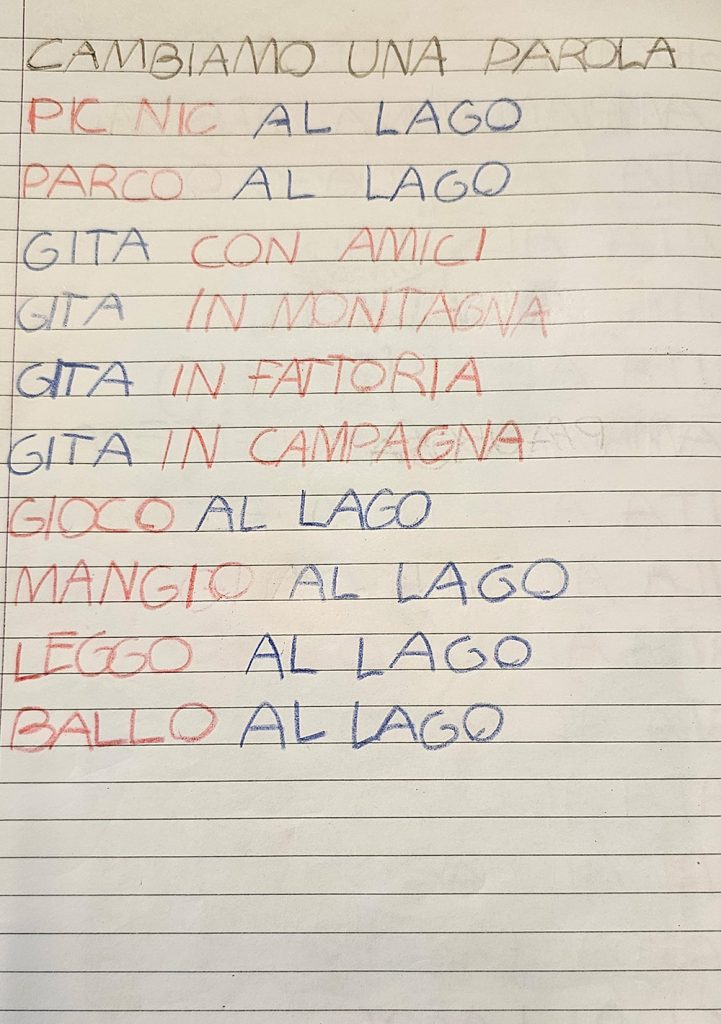 CAMBIAMO UNA PAROLA
PIC NIC AL LAGO
PARCO AL LAGO
GITA CON AMICI
GITA IN MONTAGNA
GITA IN FATTORIA
GITA IN CAMPAGNA
GIOCO AL LAGO
MANGIO AL LAGO
LEGGO AL LAGO
BALLO AL LAGO